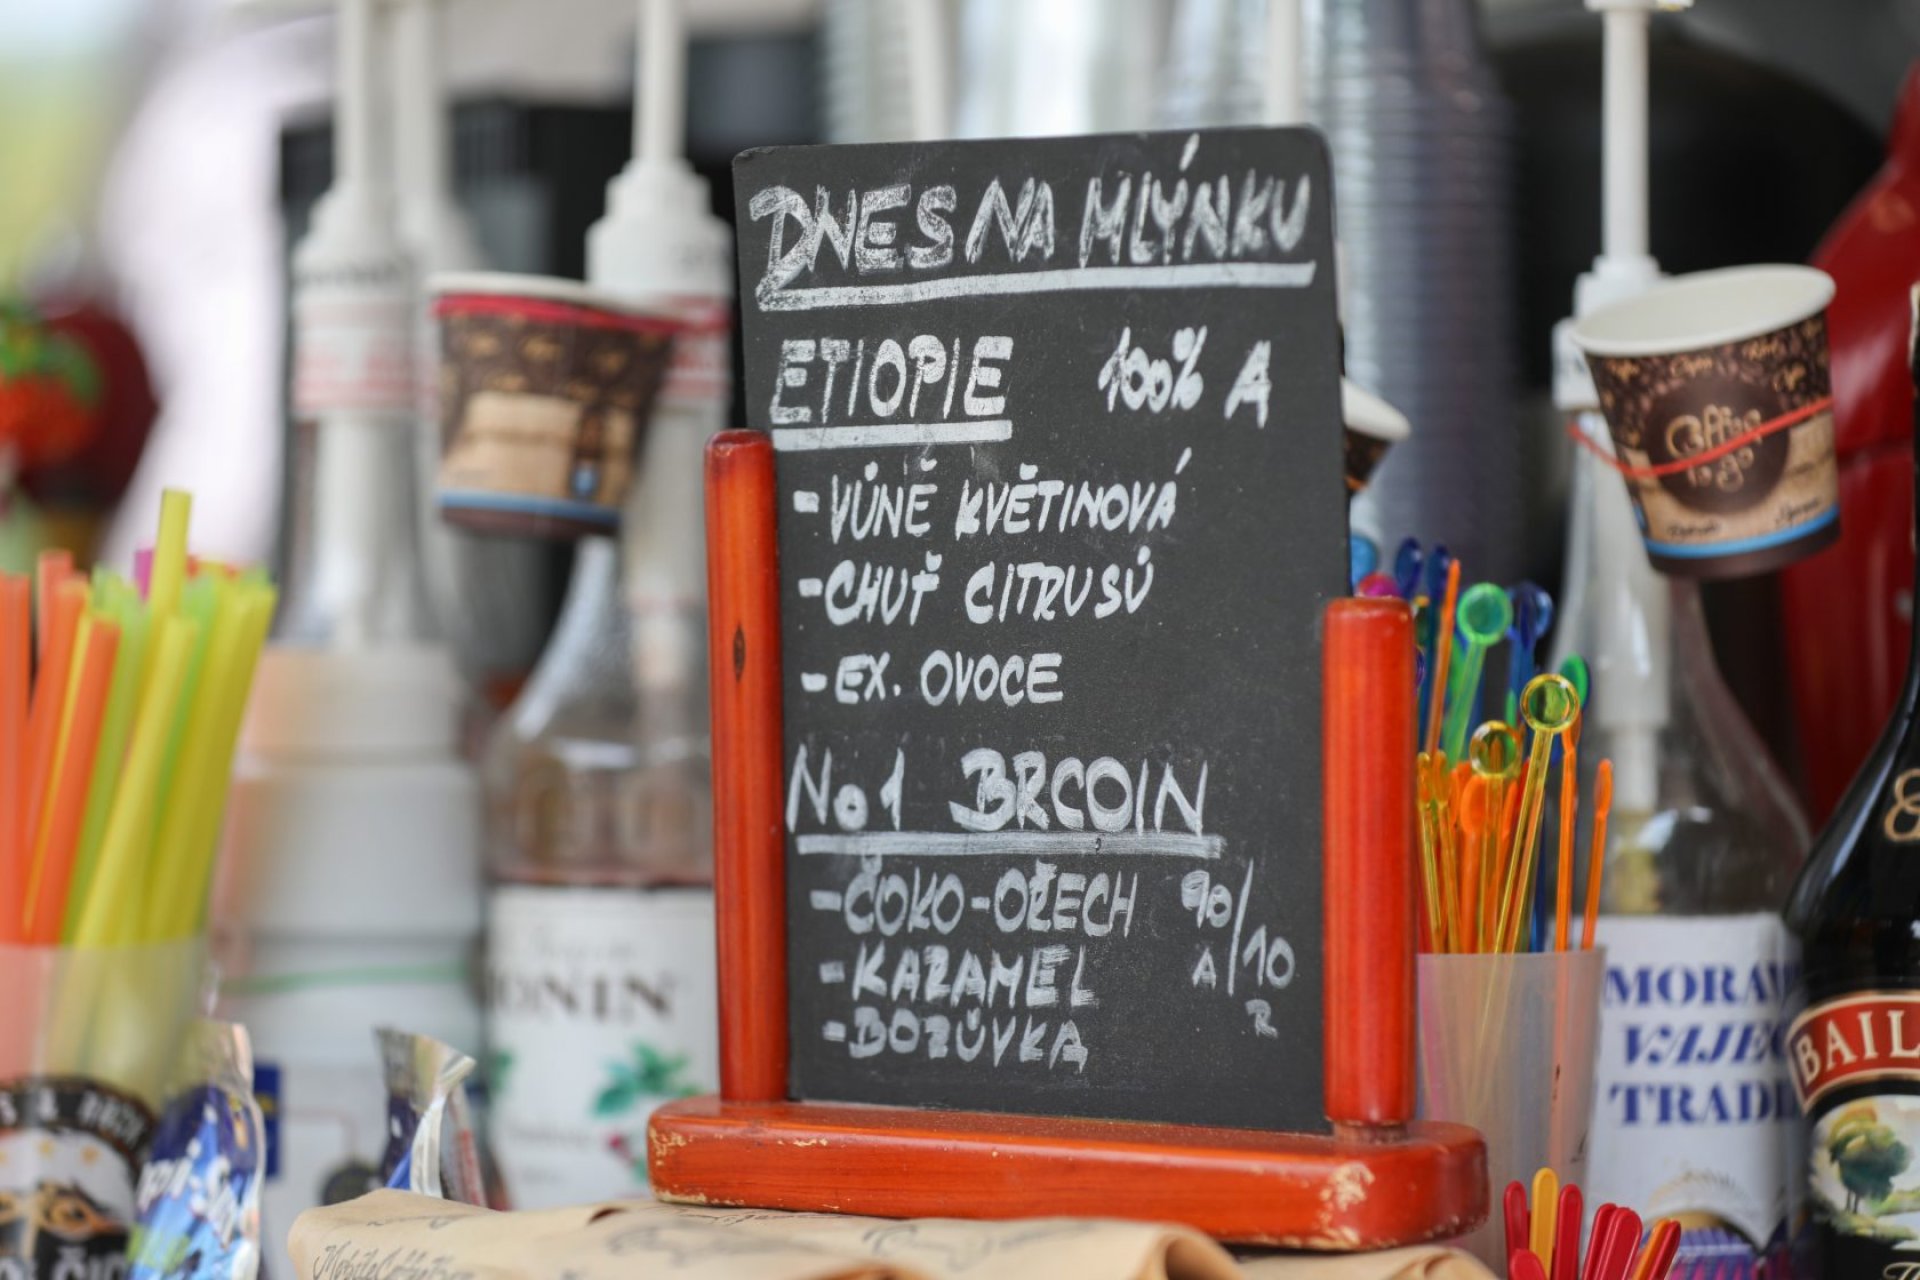 DNES NA MLÝNKU
ETIOPIE 100% A
- VŮNĚ KVĚTINOVÁ
- CHUŤ CITRUSŮ
- EX. OVOCE
No 1 BRCOIN
- ČOKO-OŘECH 90/10
- KARAMEL A R
- BORŮVKA
Coffee to go
MORAV
VAJEČ
TRADI
BAIL
ONIN
MobileCoffee